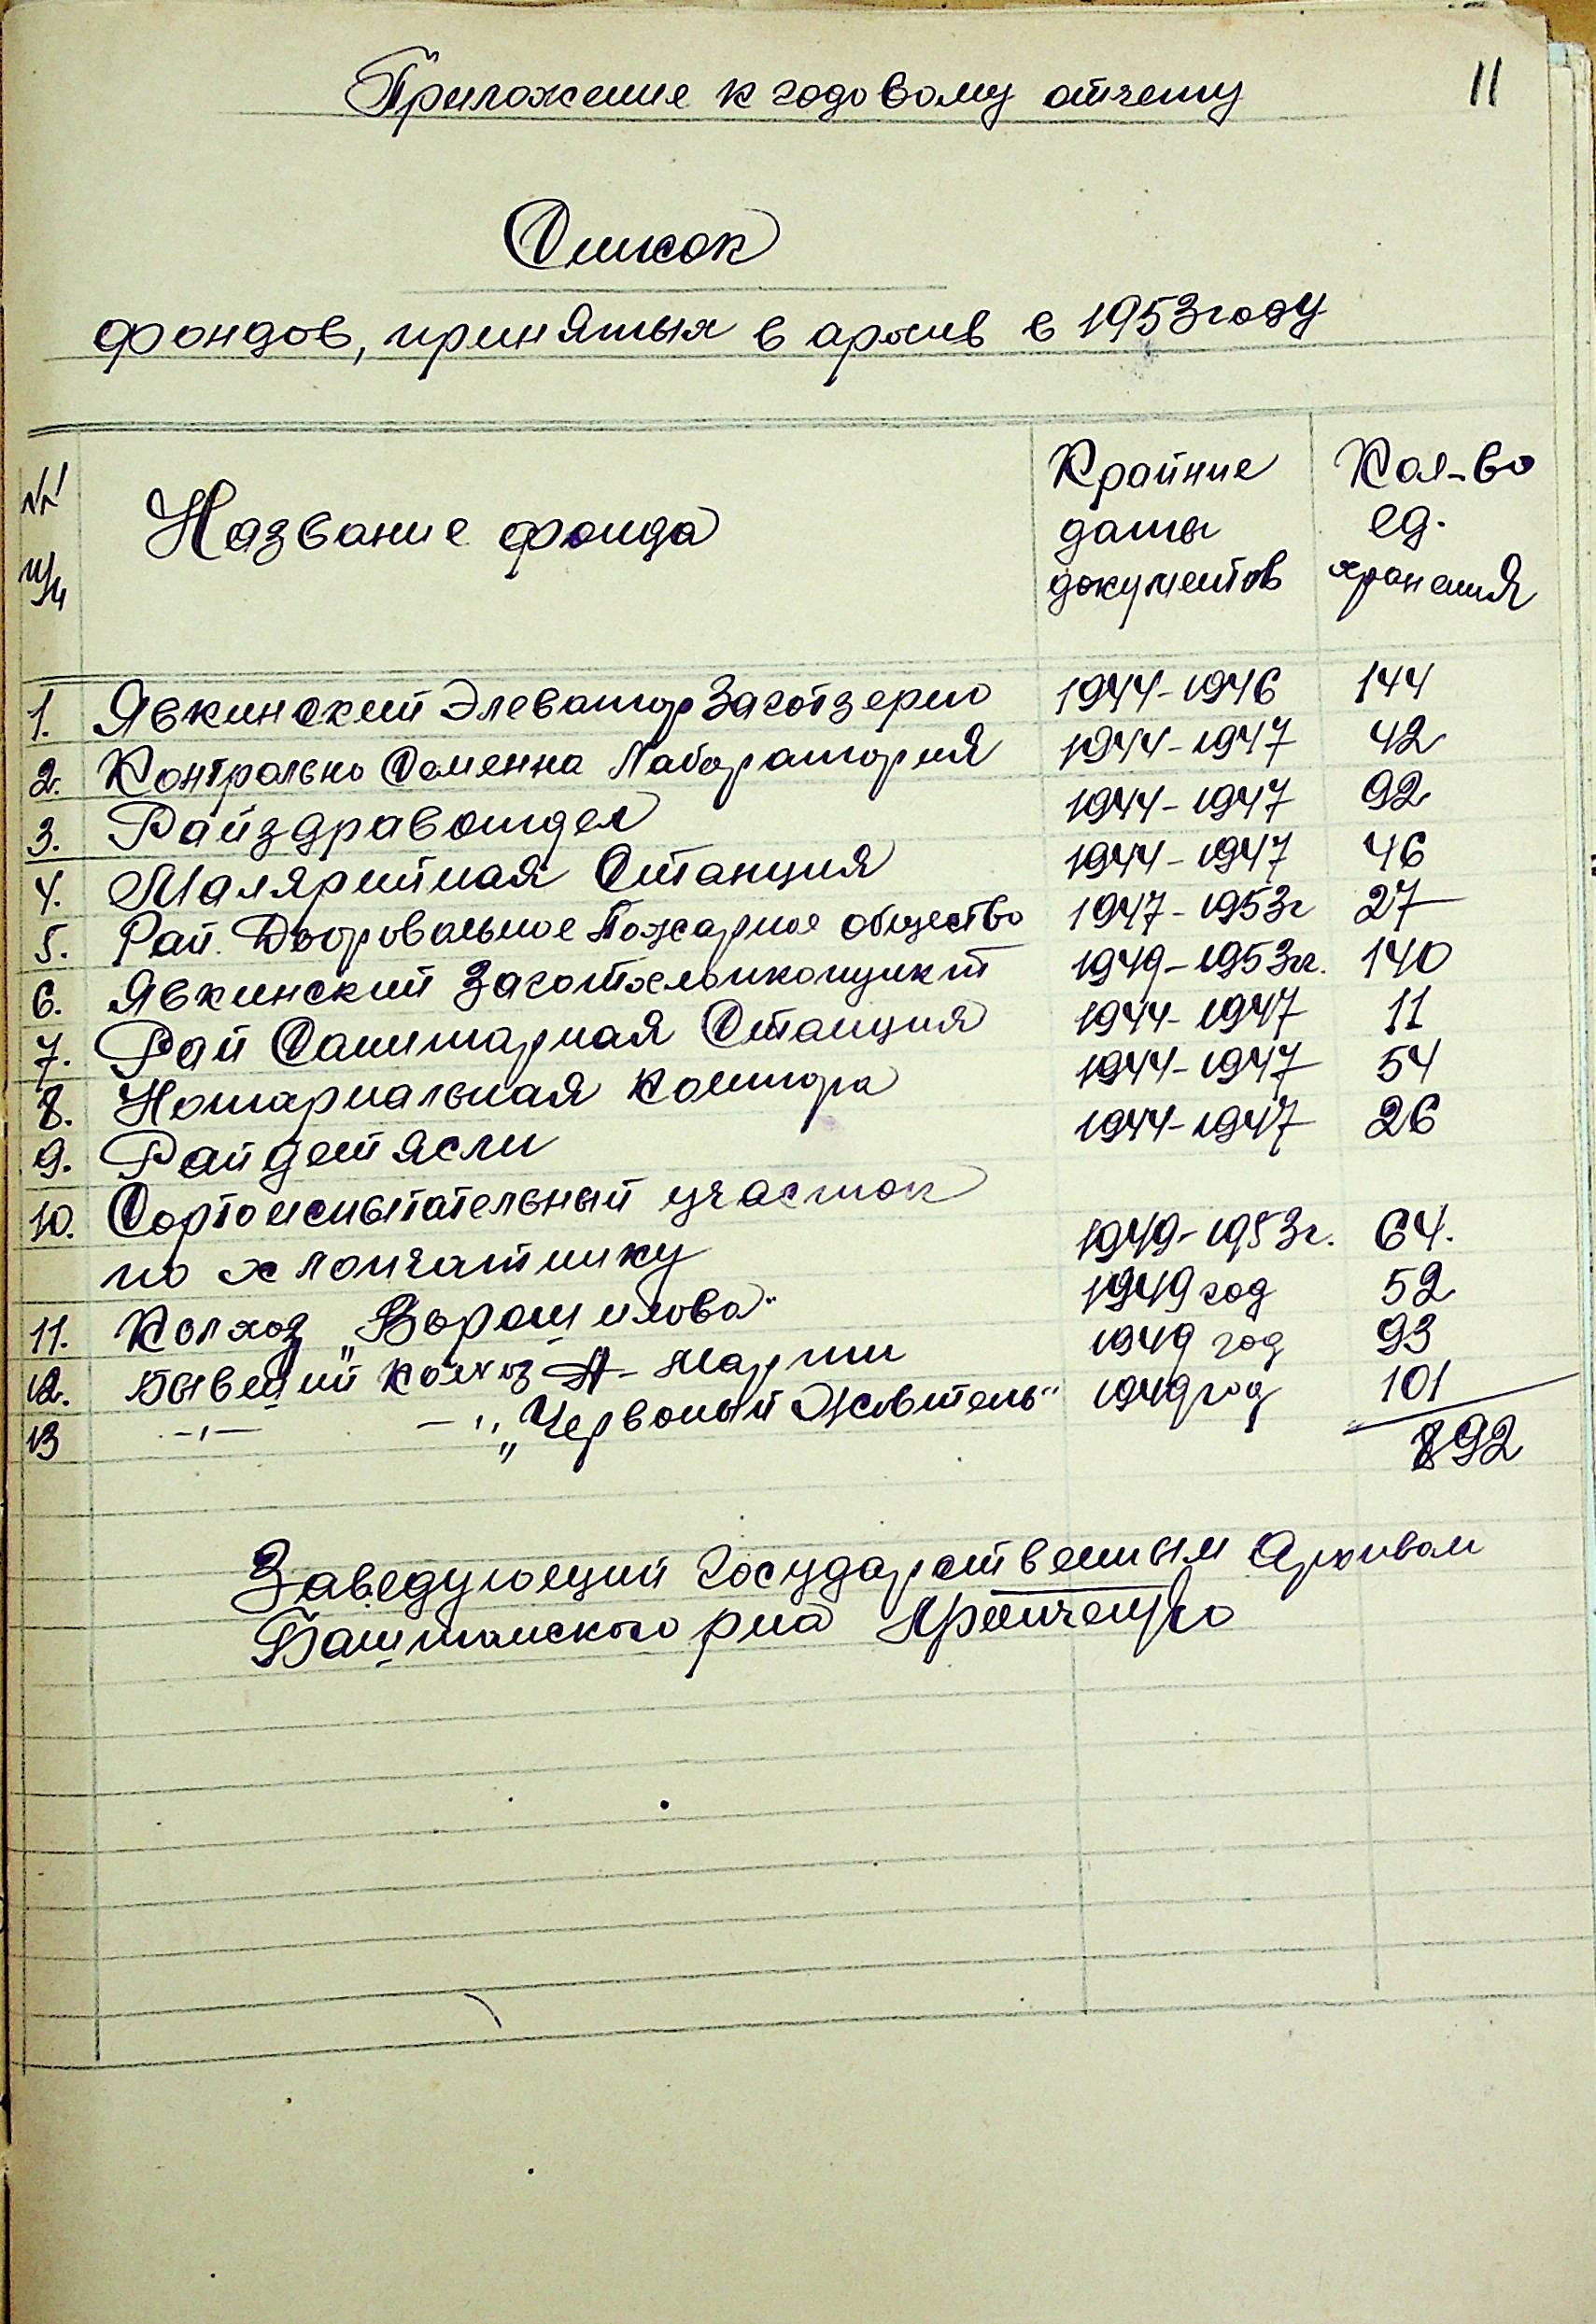 Приложение к годовому отчету 11
Список
фондов, принятых в архив в 1953 году
№ п/п Название фонда Крайние даты документов Кол-во ед. хранения
1. Явкинский Элеватор Заготзерно 1944-1946 144
2. Контрольно Семенна Лаборатория 1944-1947 42
3. Райздравотдел 1944-1947 92
4. Малярийная Станция 1944-1947 46
5. Рай. Добровольное Пожарное общество 1947-1953г 27
6. Явкинский Заготхлопкопункт 1949-1953гг. 140
7. Рай Санитарная Станция 1944-1947 11
8. Нотариальная Контора 1944-1947 54
9. Райдетясли 1944-1947 26
10. Сортоиспытательный участок
по хлопчатнику 1949-1953г. 64.
11. Колхоз „Ворошилова" 1949 год 52
12. Бывший колхоз А- Марти 1949 год 93
13 -"- -"- „Червоный Жовтень" 1949 год 101
892
Заведующий Государственным Архивом
Баштанского р-на